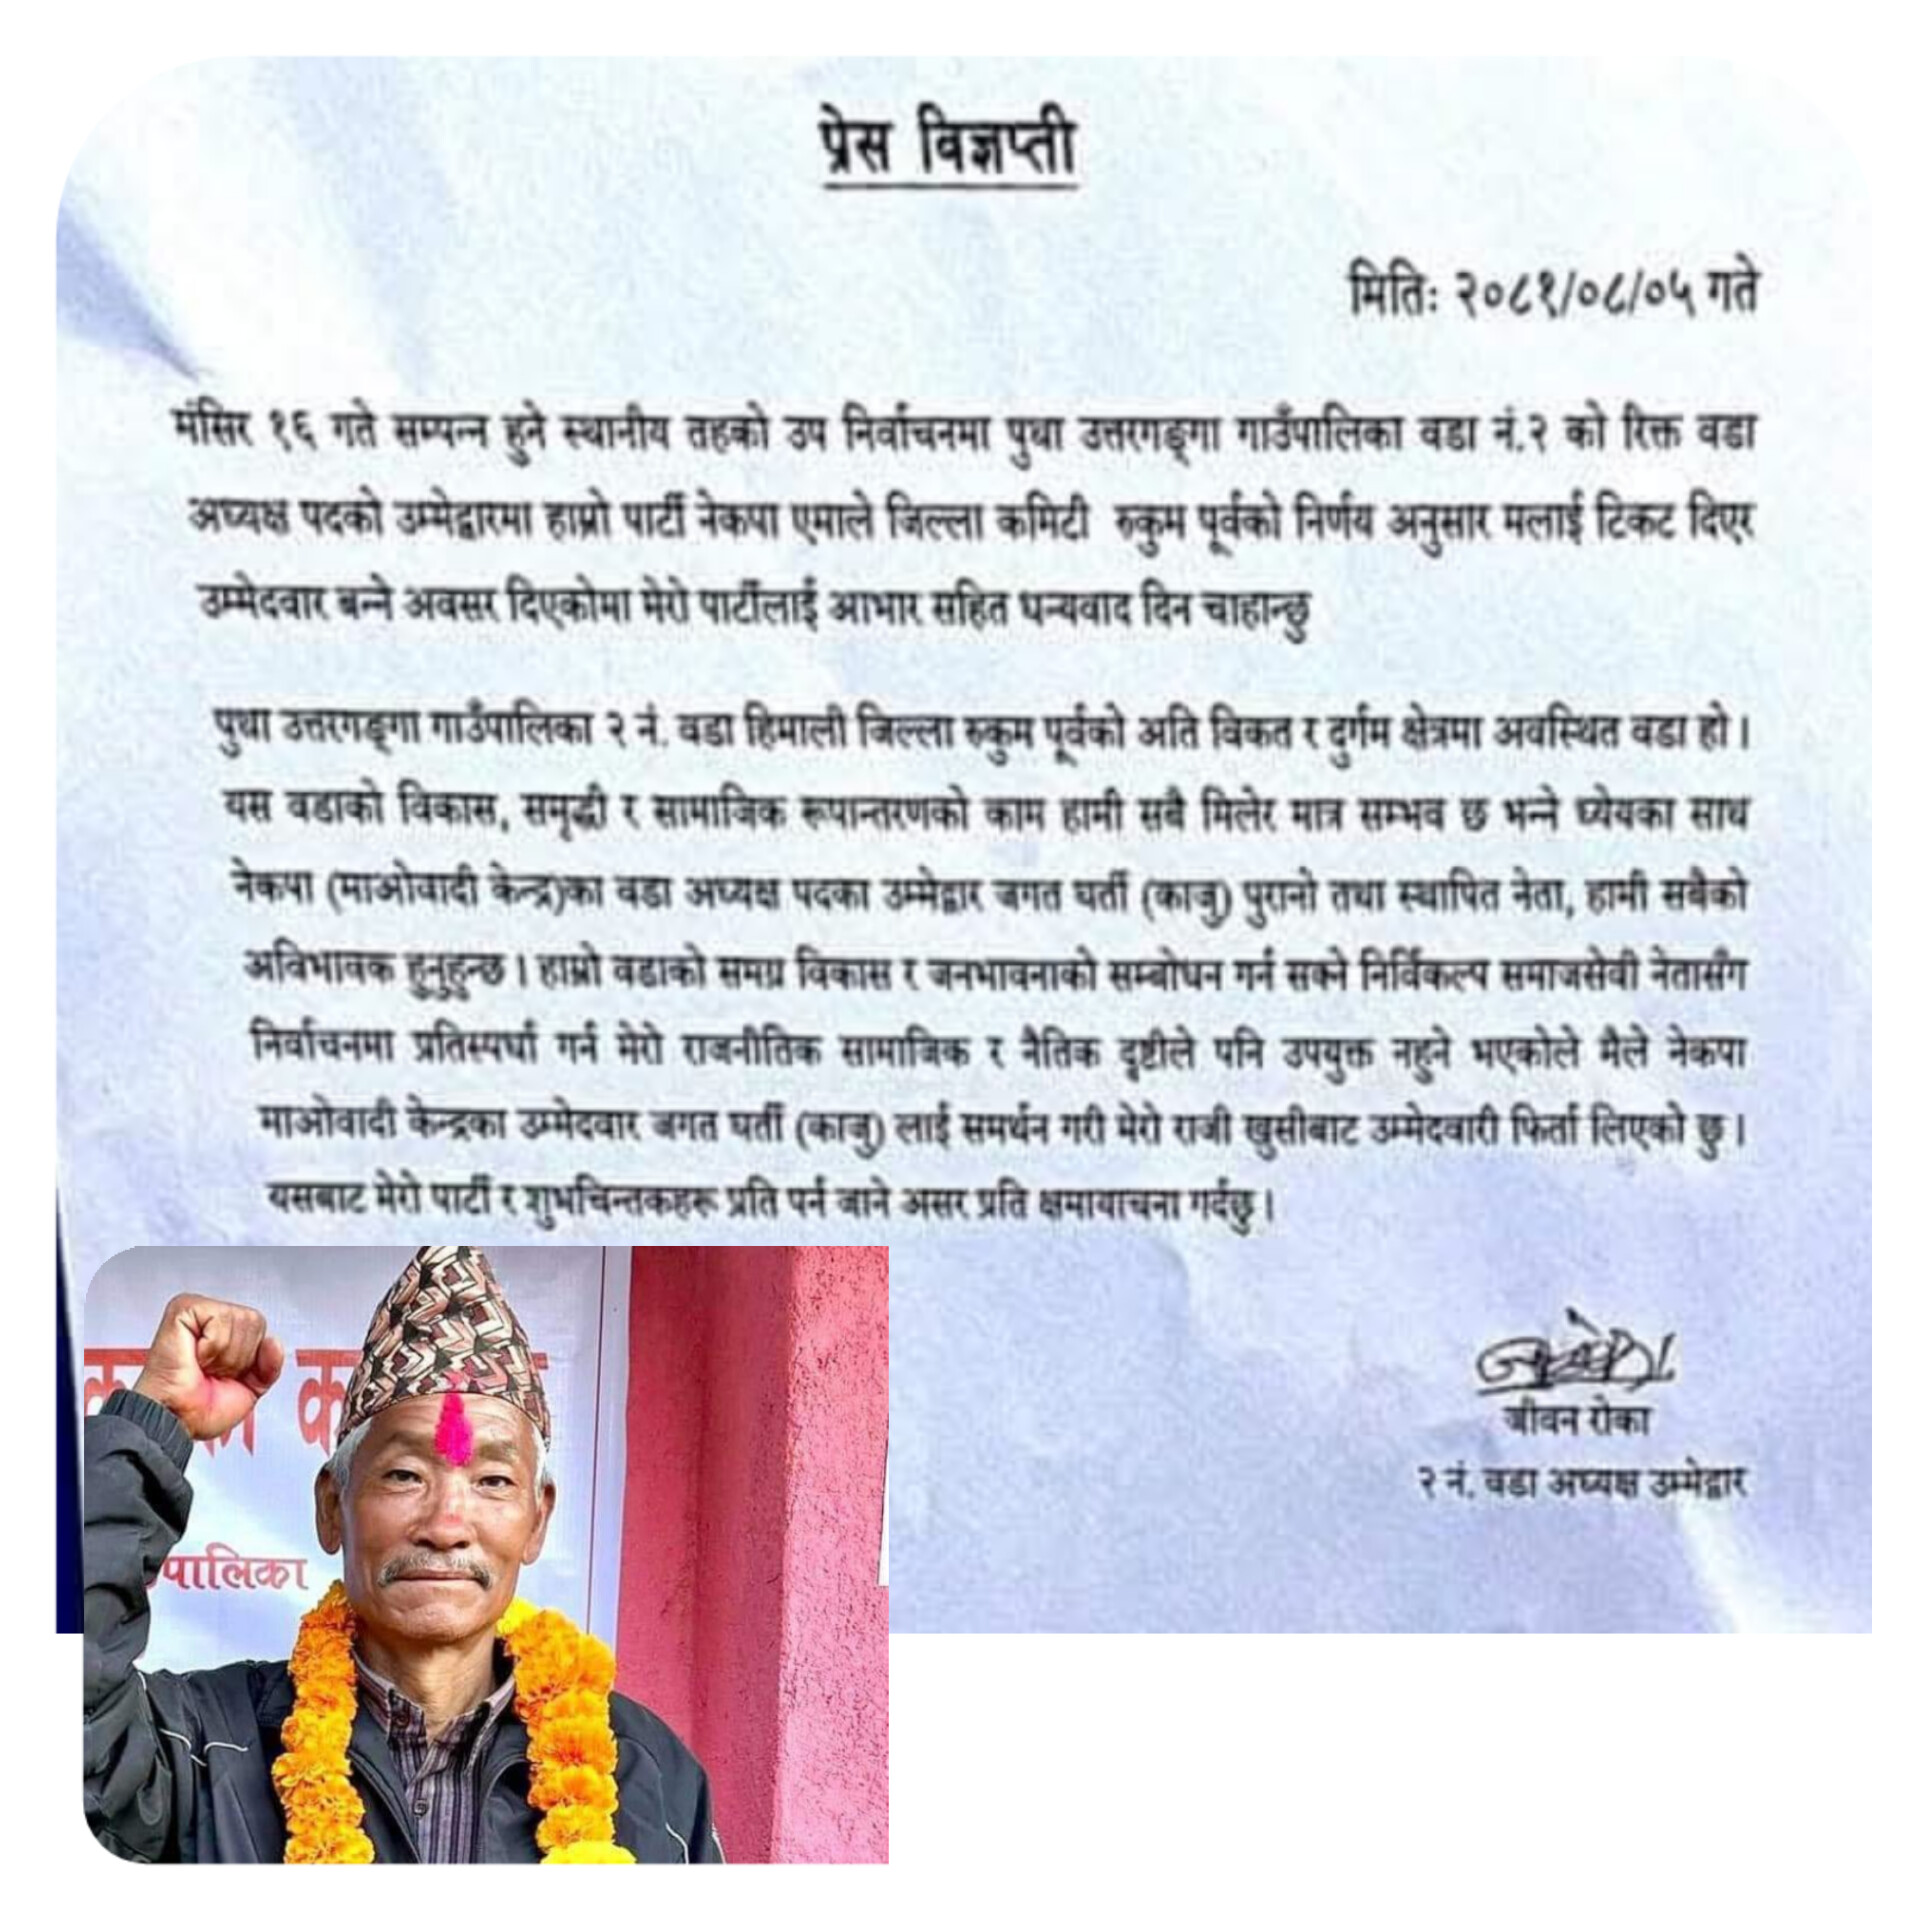 प्रेस विज्ञप्ती
मितिः २०८१/०८/०५ गते
मंसिर १६ गते सम्पन्न हुने स्थानीय तहको उप निर्वाचनमा पुथा उत्तरगङ्गा गाउँपालिका वडा नं.२ को रिक्त वडा
अध्यक्ष पदको उम्मेद्वारमा हाम्रो पार्टी नेकपा एमाले जिल्ला कमिटी रुकुम पूर्वको निर्णय अनुसार मलाई टिकट दिएर
उम्मेदवार बन्ने अवसर दिएकोमा मेरो पार्टीलाई आभार सहित धन्यवाद दिन चाहान्छु
पुथा उत्तरगङ्गा गाउँपालिका २ नं. वडा हिमाली जिल्ला रुकुम पूर्वको अति विकत र दुर्गम क्षेत्रमा अवस्थित वडा हो ।
यस वडाको विकास, समृद्धी र सामाजिक रूपान्तरणको काम हामी सबै मिलेर मात्र सम्भव छ भन्ने ध्येयका साथ
नेकपा (माओवादी केन्द्र)का वडा अध्यक्ष पदका उम्मेद्वार जगत घर्ती (काजु) पुरानो तथा स्थापित नेता, हामी सबैको
अविभावक हुनुहुन्छ । हाम्रो वडाको समग्र विकास र जनभावनाको सम्बोधन गर्न सक्ने निर्विकल्प समाजसेवी नेतासँग
निर्वाचनमा प्रतिस्पर्धा गर्न मेरो राजनीतिक सामाजिक र नैतिक दृष्टीले पनि उपयुक्त नहुने भएकोले मैले नेकपा
माओवादी केन्द्रका उम्मेदवार जगत घर्ती (काजु) लाई समर्थन गरी मेरो राजी खुसीबाट उम्मेदवारी फिर्ता लिएको छु ।
यसबाट मेरो पार्टी र शुभचिन्तकहरू प्रति पर्न जाने असर प्रति क्षमायाचना गर्दछु ।
जीवन रोका
२ नं. वडा अध्यक्ष उम्मेद्वार
पालिका